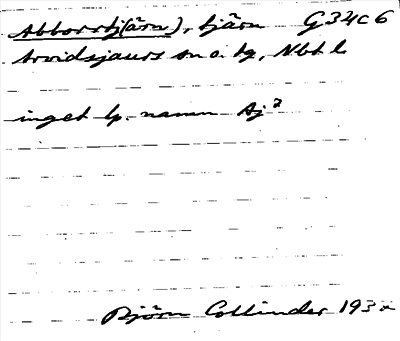 Abborrtj(ärn), tjärn G34c6
Arvidsjaurs sn o. tg, Nbt l.
inget lp. namn Aj²
Björn Collinder 193